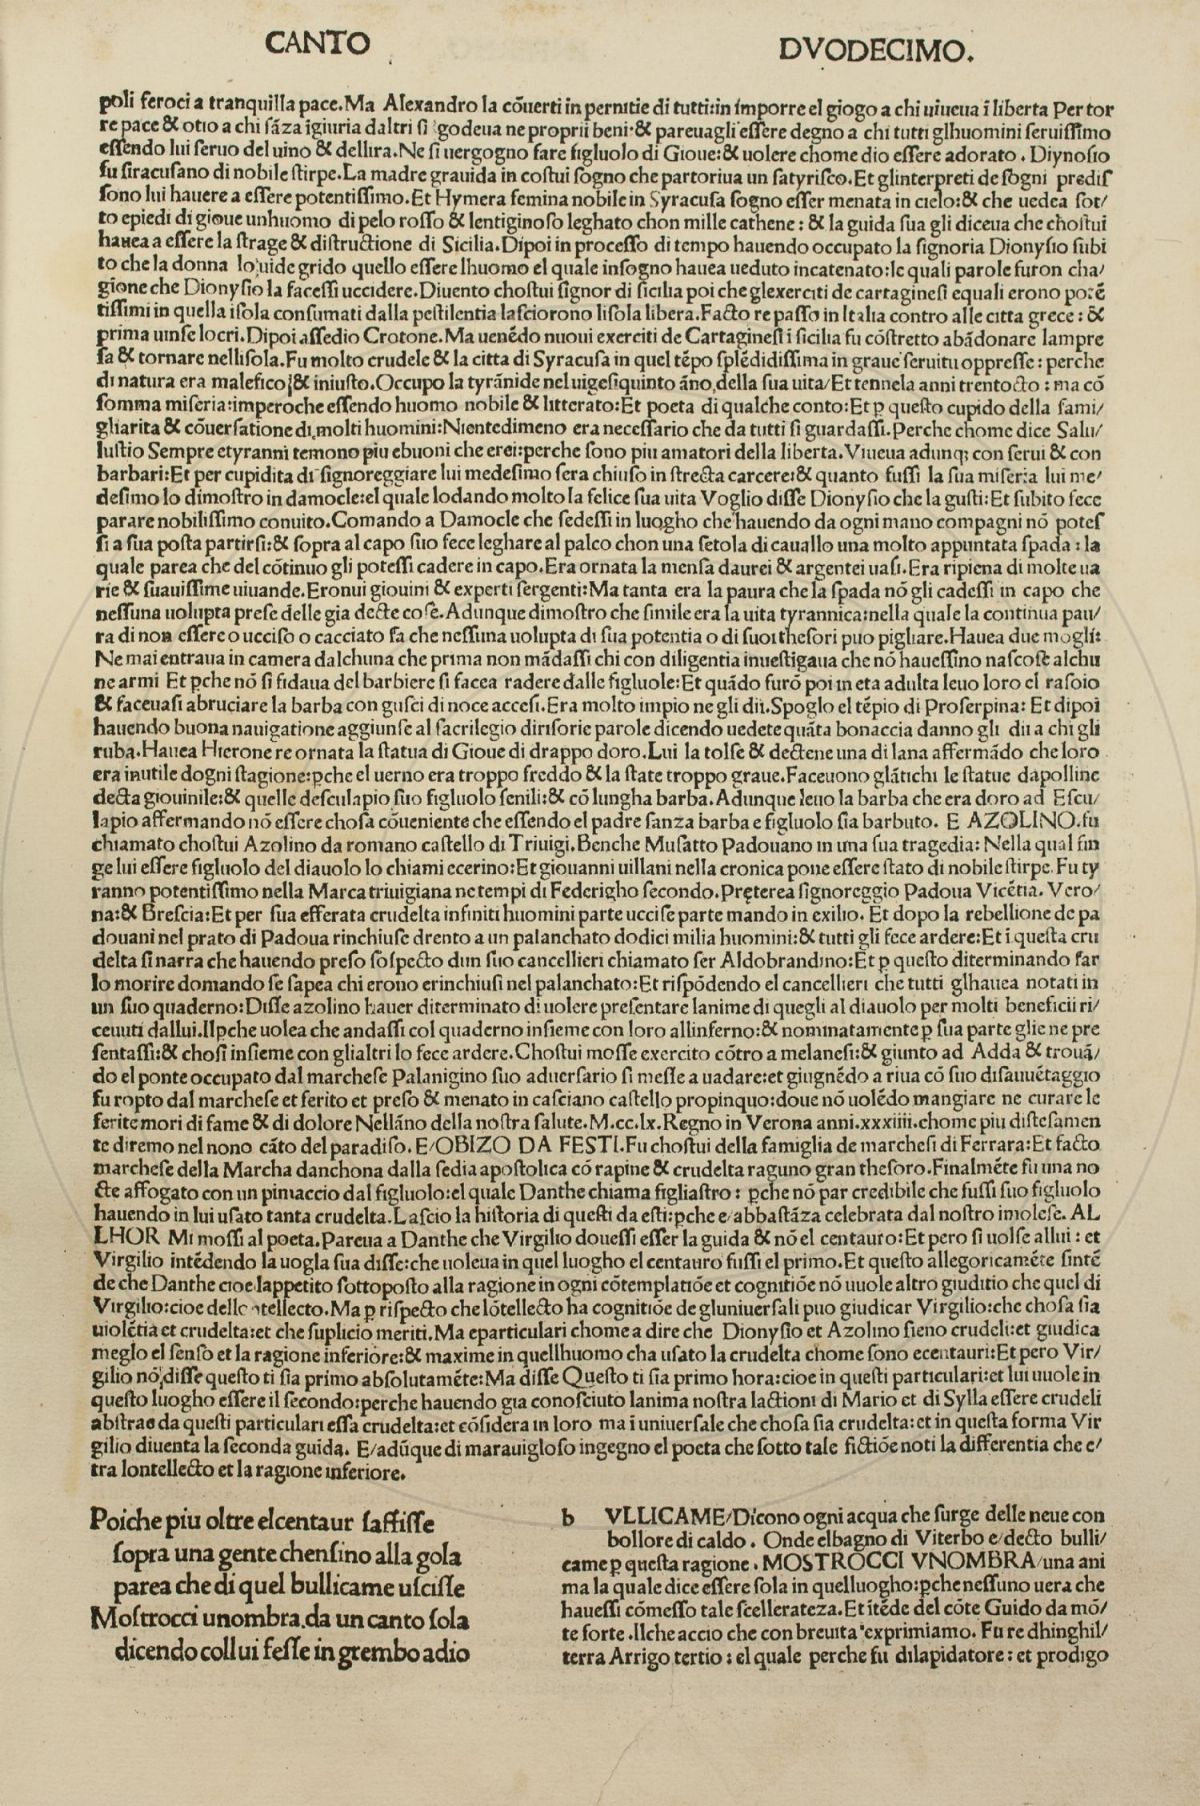 CANTO DVODECIMO.
poli feroci a tranquilla pace.Ma Alexandro la cõuerti in pernitie di tutti:in imporre el giogo a chi uiueua ĩ liberta Per tor
re pace & otio a chi sãza ĩgiuria daltri si godeua ne proprii beni·& pareuagli essere degno a chi tutti glhuomini seruissimo
essendo lui seruo del uino & dellira.Ne si uergogno fare figluolo di Gioue:& uolere chome dio essere adorato . Diynosio
fu siracusano di nobile stirpe.La madre grauida in costui sogno che partoriua un satyrisco.Et glinterpreti de sogni predis
sono lui hauere a essere potentissimo.Et Hymera femina nobile in Syracusa sogno esser menata in cielo:& che uedea sot/
to epiedi di gioue unhuomo di pelo rosso & lentiginoso leghato chon mille cathene : & la guida sua gli diceua che chostui
hauea a essere la strage & distructione di Sicilia.Dipoi in processo di tempo hauendo occupato la signoria Dionysio subi
to che la donna lo uide grido quello essere lhuomo el quale insogno hauea ueduto incatenato:le quali parole furon cha/
gione che Dionysio la facessi uccidere.Diuento chostui signor di sicilia poi che glexerciti de cartaginesi equali erono potẽ
tissimi in quella isola consumati dalla pestilentia lasciorono lisola libera.Facto re passo in Italia contro alle citta grece : &
prima uinse locri.Dipoi assedio Crotone.Ma uenẽdo nuoui exerciti de Cartaginesi ĩ sicilia fu cõstretto abãdonare lampre
sa & tornare nellisola.Fu molto crudele & la citta di Syracusa in quel tẽpo splẽdidissima in graue seruitu oppresse : perche
di natura era malefico & iniusto.Occupo la tyrãnide nel uigesiquinto ãno della sua uita/Et tennela anni trentocto : ma cõ
somma miseria:imperoche essendo huomo nobile & litterato:Et poeta di qualche conto:Et p questo cupido della fami/
gliarita & cõuersatione di molti huomini:Nientedimeno era necessario che da tutti si guardassi.Perche chome dice Salu/
lustio Sempre etyranni temono piu ebuoni che erei:perche sono piu amatori della liberta.Viueua adunq; con serui & con
barbari:Et per cupidita di signoreggiare lui medesimo sera chiuso in strecta carcere:& quanto fussi la sua miseria lui me/
desimo lo dimostro in damocle:el quale lodando molto la felice sua uita Voglio disse Dionysio che la gusti:Et subito fece
parare nobilissimo conuito.Comando a Damocle che sedessi in luogho che hauendo da ogni mano compagni nõ potes
si a sua posta partirsi:& sopra al capo suo fece leghare al palco chon una setola di cauallo una molto appuntata spada : la
quale parea che del cõtinuo gli potessi cadere in capo.Era ornata la mensa daurei & argentei uasi.Era ripiena di molte ua
rie & suauissime uiuande.Eronui giouini & experti sergenti:Ma tanta era la paura che la spada nõ gli cadessi in capo che
nessuna uolupta prese delle gia decte cose.Adunque dimostro che simile era la uita tyrannica:nella quale la continua pau/
ra di non essere o ucciso o cacciato fa che nessuna uolupta di sua potentia o di suoi thesori puo pigliare.Hauea due mogli:
Ne mai entraua in camera dalchuna che prima non mãdassi chi con diligentia inuestigaua che nõ hauessino nascoste alchu
ne armi Et pche nõ si fidaua del barbiere si facea radere dalle figluole:Et quãdo furõ poi in eta adulta leuo loro el rasoio
& faceuasi abruciare la barba con gusci di noce accesi.Era molto impio ne gli dii.Spoglo el tẽpio di Proserpina: Et dipoi
hauendo buona nauigatione aggiunse al sacrilegio dirisorie parole dicendo uedete quãta bonaccia danno gli dii a chi gli
ruba.Hauea Hierone re ornata la statua di Gioue di drappo doro.Lui la tolse & dectene una di lana affermãdo che loro
era inutile dogni stagione:pche el uerno era troppo freddo & la state troppo graue.Faceuono glãtichi le statue dapolline
decta giouinile:& quelle desculapio suo figluolo senili:& cõ lungha barba.Adunque leuo la barba che era doro ad Escu/
lapio affermando nõ essere chosa cõueniente che essendo el padre sanza barba e figluolo sia barbuto. E AZOLINO.fu
chiamato chostui Azolino da romano castello di Triuigi.Benche Musatto Padouano in una sua tragedia: Nella qual fin
ge lui essere figluolo del diauolo lo chiami ecerino:Et giouanni uillani nella cronica pone essere stato di nobile stirpe.Fu ty
ranno potentissimo nella Marca triuigiana ne tempi di Federigho secondo.Pręterea signoreggio Padoua Vicẽtia. Vero/
na:& Brescia:Et per sua efferata crudelta infiniti huomini parte uccise parte mando in exilio. Et dopo la rebellione de pa
douani nel prato di Padoua rinchiuse drento a un palanchato dodici milia huomini:& tutti gli fece ardere:Et ĩ questa cru
delta si narra che hauendo preso sospecto dun suo cancellieri chiamato ser Aldobrandino:Et p questo diterminando far
lo morire domando se sapea chi erono erinchiusi nel palanchato:Et rispõdendo el cancellieri che tutti glhauea notati in
un suo quaderno:Disse azolino hauer diterminato di uolere presentare lanime di quegli al diauolo per molti beneficii ri/
ceuuti dallui.Ilpche uolea che andassi col quaderno insieme con loro allinferno:& nominatamente p sua parte glie ne pre
sentassi:& chosi insieme con glialtri lo fece ardere.Chostui mosse exercito cõtro a melanesi:& giunto ad Adda & trouã/
do el ponte occupato dal marchese Palanigino suo aduersario si messe a uadare:et giugnẽdo a riua cõ suo disauuẽtaggio
fu ropto dal marchese et ferito et preso & menato in casciano castello propinquo:doue nõ uolẽdo mangiare ne curare le
ferite mori di fame & di dolore Nellãno della nostra salute.M.cc.lx.Regno in Verona anni.xxxiiii.chome piu distesamen
te diremo nel nono cãto del paradiso. E/OBIZO DA FESTI.Fu chostui della famiglia de marchesi di Ferrara:Et facto
marchese della Marcha danchona dalla sedia apostolica cõ rapine & crudelta raguno gran thesoro.Finalmẽte fu una no
cte affogato con un pimaccio dal figluolo:el quale Danthe chiama figliastro : pche nõ par credibile che fussi suo figluolo
hauendo in lui usato tanta crudelta.Lascio la historia di questi da esti:pche e/abbastãza celebrata dal nostro imolese. AL
LHOR Mi mossi al poeta.Pareua a Danthe che Virgilio douessi esser la guida & nõ el centauro:Et pero si uolse allui : et
Virgilio intẽdendo la uogla sua disse:che uoleua in quel luogho el centauro fussi el primo.Et questo allegoricamẽte sintẽ
de che Danthe cioe lappetito sottoposto alla ragione in ogni cõtemplatiõe et cognitiõe nõ uuole altro giuditio che quel di
Virgilio:cioe dello ntellecto.Ma p rispecto che lõtellecto ha cognitiõe de gluniuersali puo giudicar Virgilio:che chosa sia
uiolẽtia et crudelta:et che suplicio meriti.Ma eparticulari chome a dire che Dionysio et Azolino sieno crudeli:et giudica
meglo el senso et la ragione inferiore:& maxime in quellhuomo cha usato la crudelta chome sono ecentauri:Et pero Vir/
gilio nõ disse questo ti sia primo absolutamẽte:Ma disse Questo ti sia primo hora:cioe in questi particulari:et lui uuole in
questo luogho essere il secondo:perche hauendo gia conosciuto lanima nostra lactioni di Mario et di Sylla essere crudeli
abstrae da questi particulari essa crudelta:et cõsidera in loro ma ĩ uniuersale che chosa sia crudelta:et in questa forma Vir
gilio diuenta la seconda guida. E/adũque di marauigloso ingegno el poeta che sotto tale fictiõe noti la differentia che e/
tra lontellecto et la ragione inferiore.
Poiche piu oltre elcentaur saffisse
sopra una gente chensino alla gola
parea che di quel bullicame uscisse
Mostrocci unombra.da un canto sola
dicendo collui fesse in grembo adio
b VLLICAME/Dicono ogni acqua che surge delle neue con
bollore di caldo . Onde elbagno di Viterbo e/decto bulli/
came p questa ragione . MOSTROCCI VNOMBRA/una ani
ma la quale dice essere sola in quelluogho:pche nessuno uera che
hauessi cõmesso tale scellerateza.Et ĩtẽde del cõte Guido da mõ/
te forte .Ilche accio che con breuita exprimiamo. Fu re dhinghil/
terra Arrigo tertio : el quale perche fu dilapidatore : et prodigo